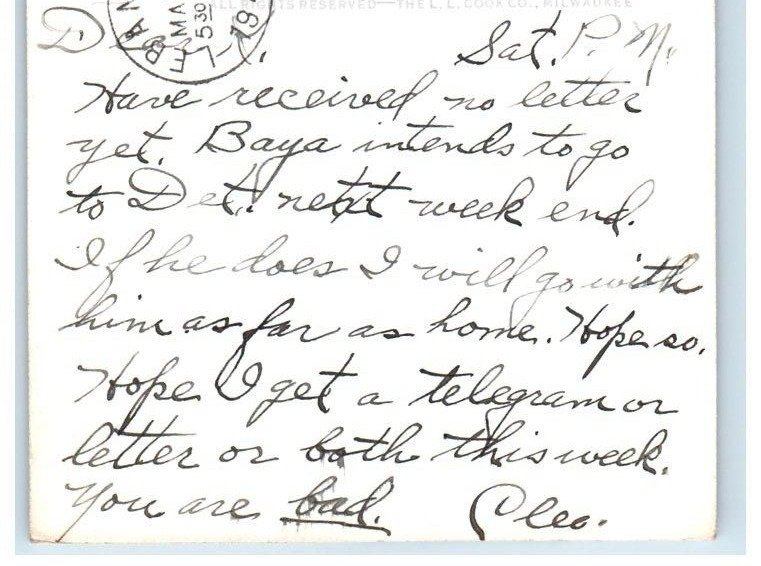 ALL RIGHTS RESERVED—THE L. L. COOK CO., MILWAUKEE
LEBAN
MA
5 30
19
Sat. P. M.
Have received no letter
yet. Baya intends to go
to Det. next week end.
If he does I will go with
him as far as home. Hope so.
Hope I get a telegram or
letter or both this week.
You are bad. Cleo.